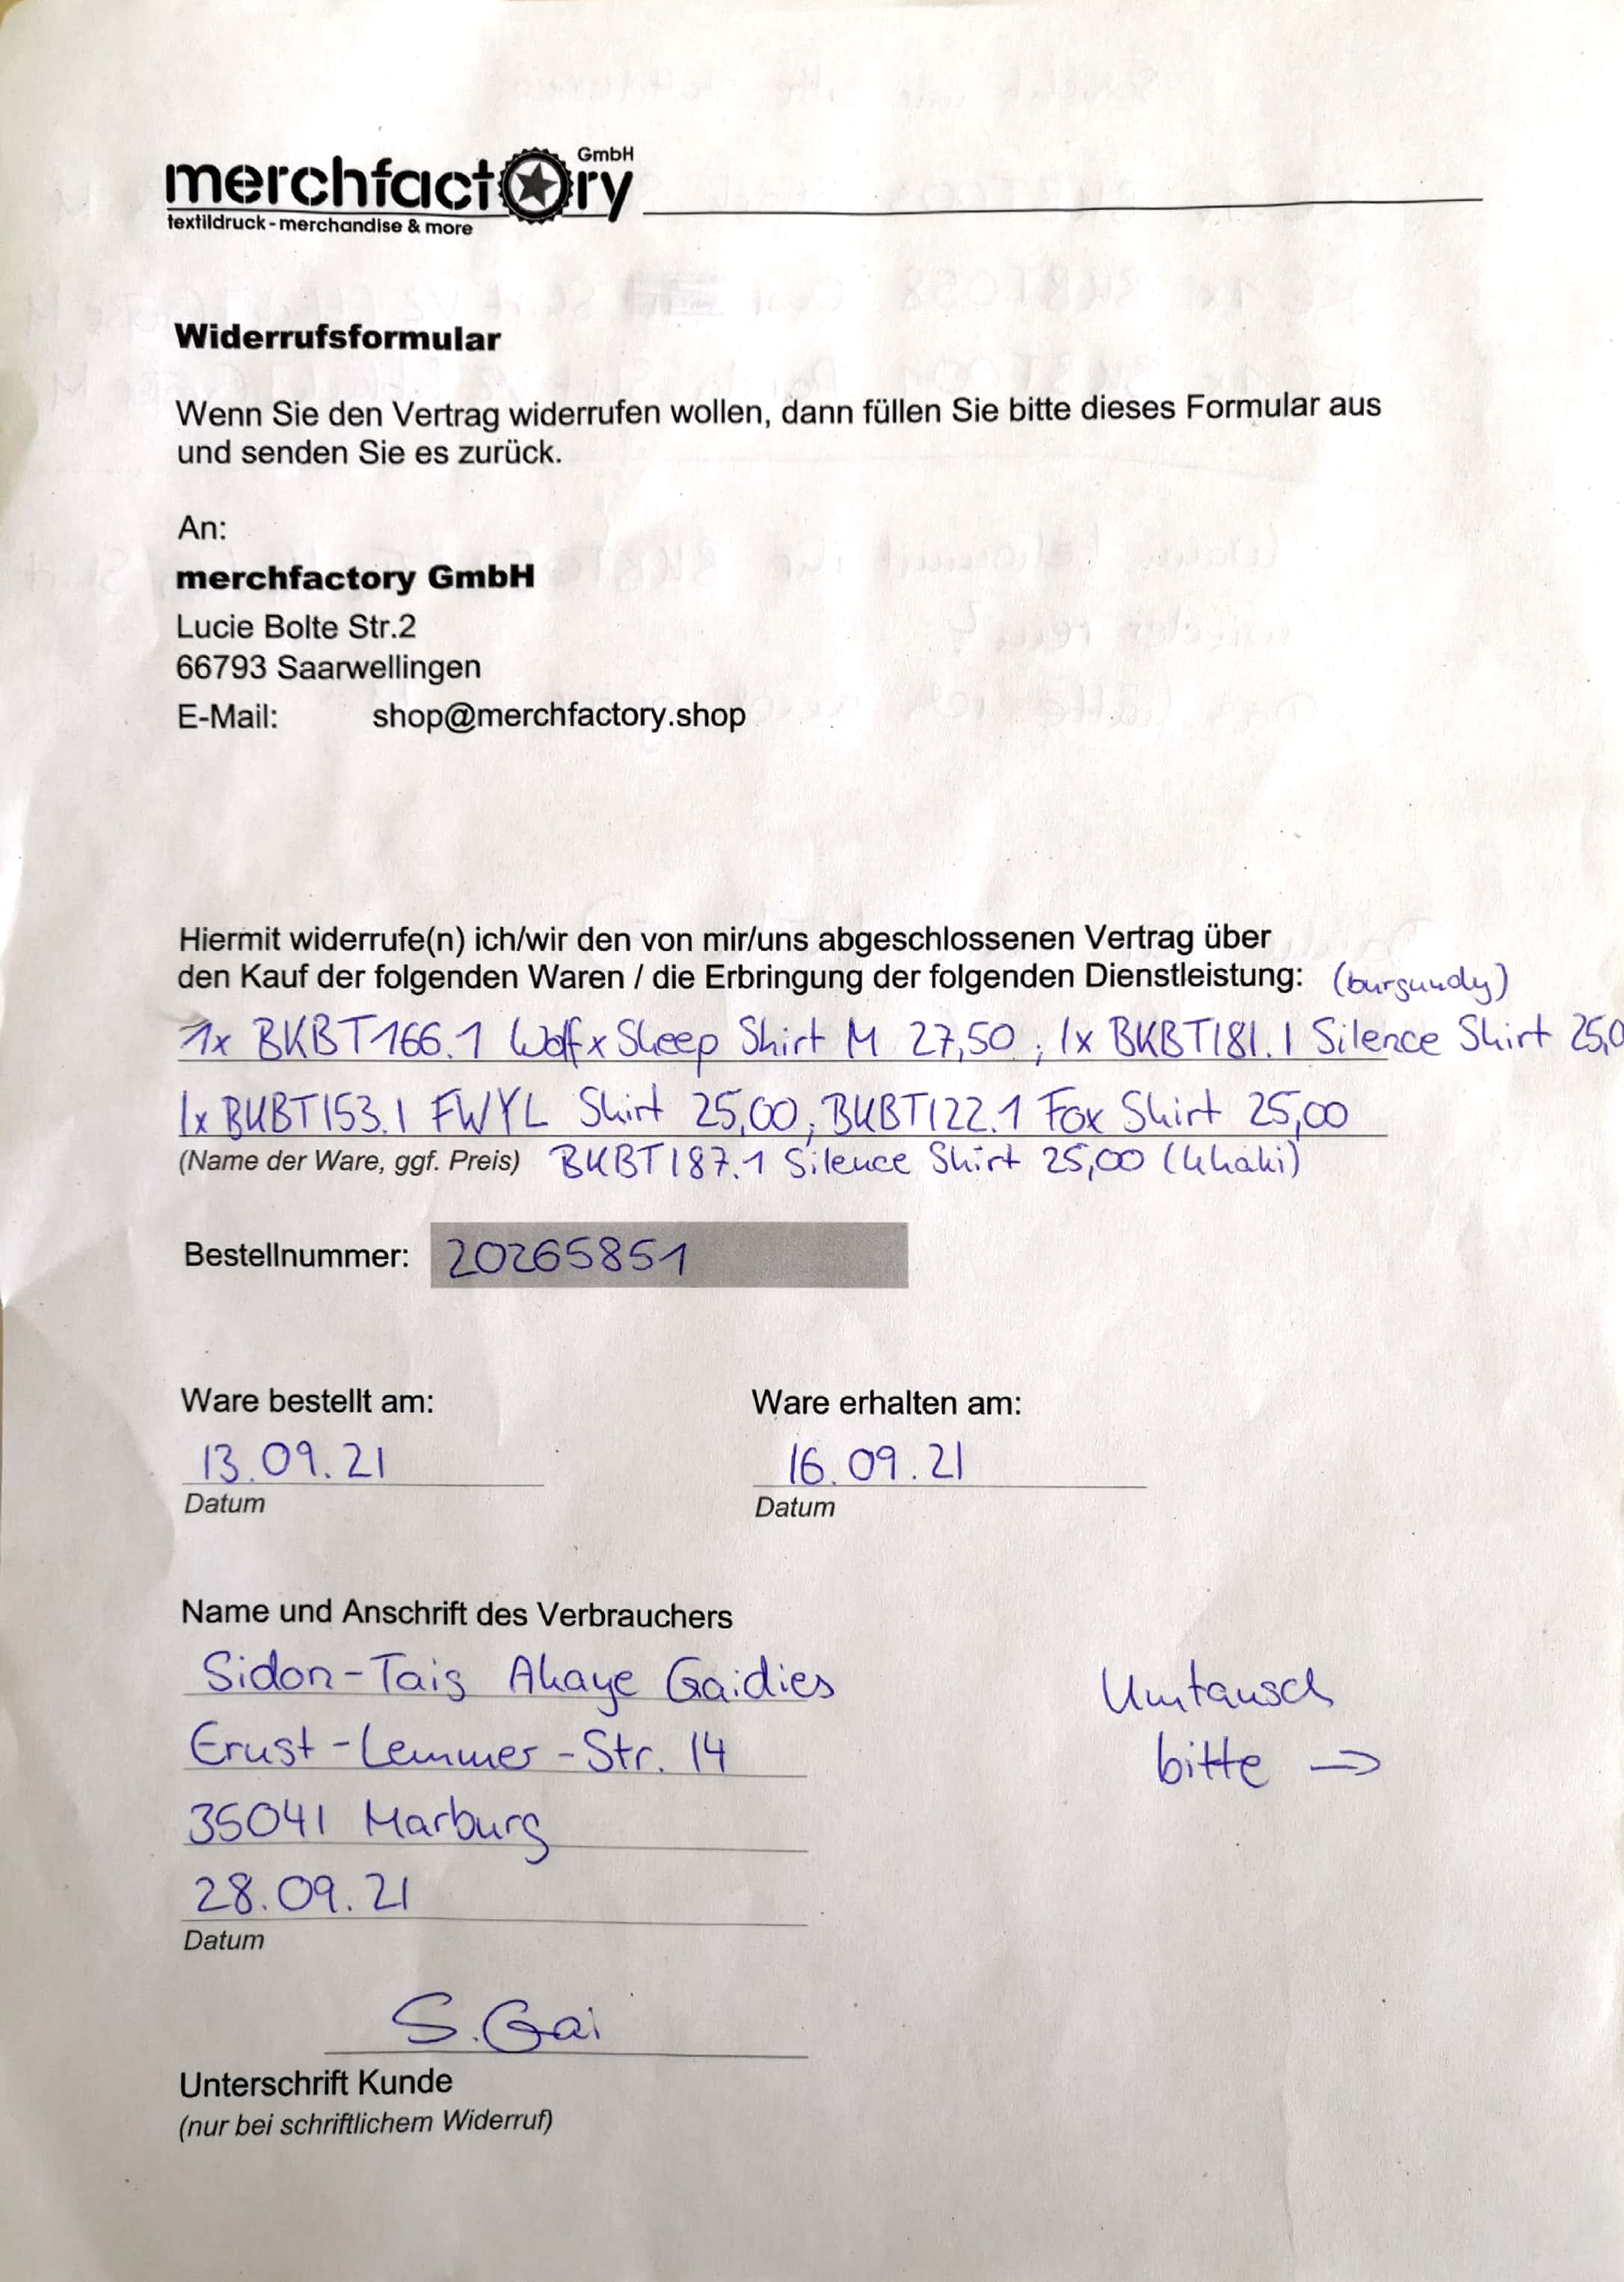 merchfactory GmbH
textildruck - merchandise & more
Widerrufsformular
Wenn Sie den Vertrag widerrufen wollen, dann füllen Sie bitte dieses Formular aus
und senden Sie es zurück.
An:
merchfactory GmbH
Lucie Bolte Str.2
66793 Saarwellingen
E-Mail: shop@merchfactory.shop
Hiermit widerrufe(n) ich/wir den von mir/uns abgeschlossenen Vertrag über
den Kauf der folgenden Waren / die Erbringung der folgenden Dienstleistung: (burgundy)
1x BKBT166.1 Wolf x Sheep Shirt M 27,50 ; 1x BKBT181.1 Silence Shirt 25,0
1x BKBT153.1 FWYL Shirt 25,00; BKBT122.1 Fox Shirt 25,00
(Name der Ware, ggf. Preis) BKBT187.1 Silence Shirt 25,00 (khaki)
Bestellnummer: 20265851
Ware bestellt am: Ware erhalten am:
13.09.21 16.09.21
Datum Datum
Name und Anschrift des Verbrauchers
Sidon-Tais Akaye Gaidies
Ernst-Lemmer-Str. 14
35041 Marburg
28.09.21
Datum
Umtausch
bitte →
S. Gai
Unterschrift Kunde
(nur bei schriftlichem Widerruf)